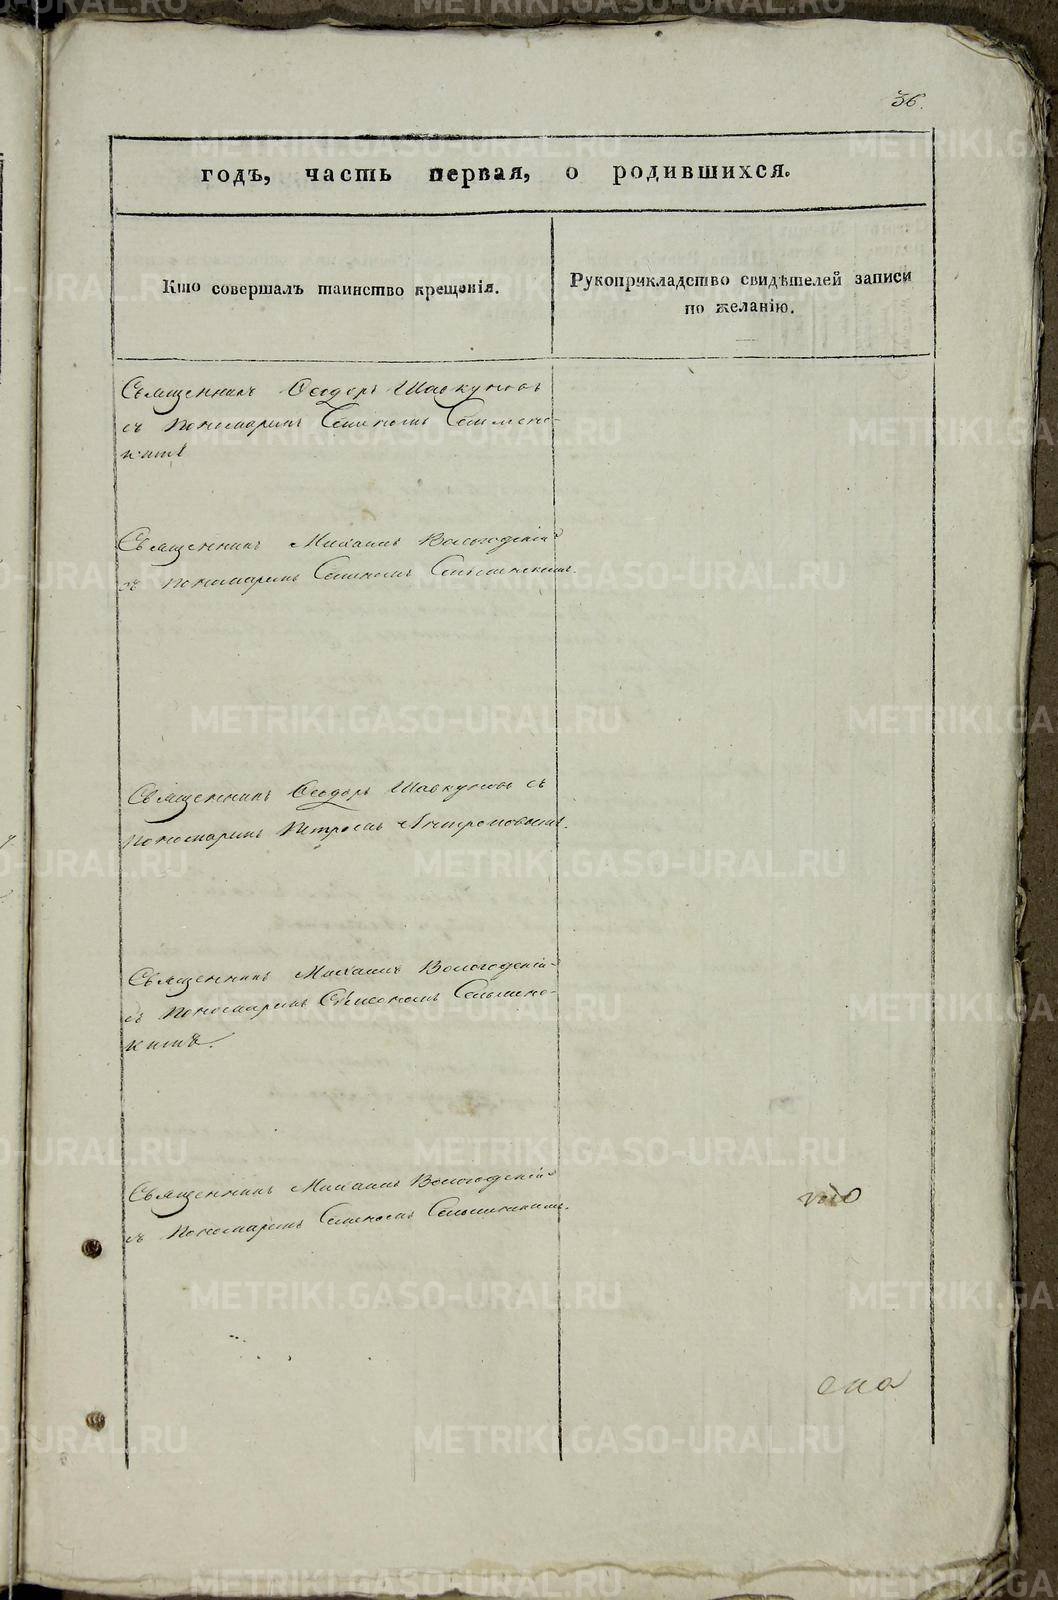 36.
годъ, часть первая, о родившихся.
Кто совершалъ таинство крещенія.
Рукоприкладство свидѣтелей записи
по желанію.
Священникъ Ѳеодоръ Шавкуновъ
съ пономаремъ Симономъ
Священникъ Михаилъ Вологодскій
съ пономаремъ Симономъ
Священникъ Ѳеодоръ Шавкуновъ съ
пономаремъ Петромъ Антроповымъ.
Священникъ Михаилъ Вологодскій
съ пономаремъ Симономъ
Священникъ Михаилъ Вологодскій
съ пономаремъ Симономъ
METRIKI.GASO-URAL.RU